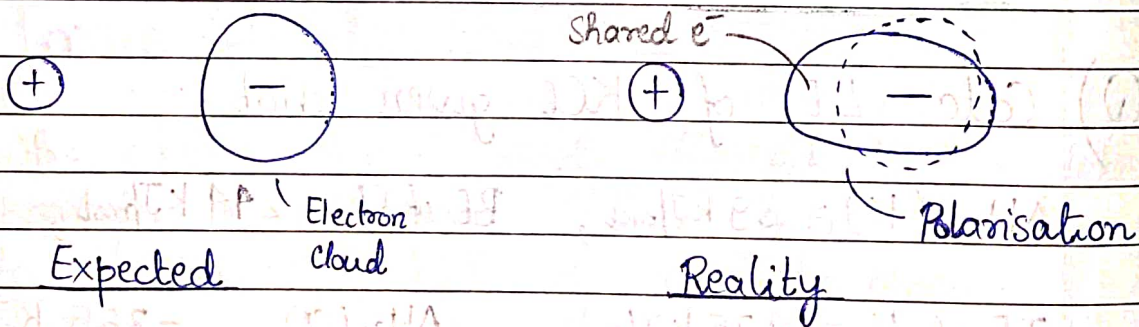 Shared e⁻
+
−
+
−
Electron
cloud
Polarisation
Expected
Reality